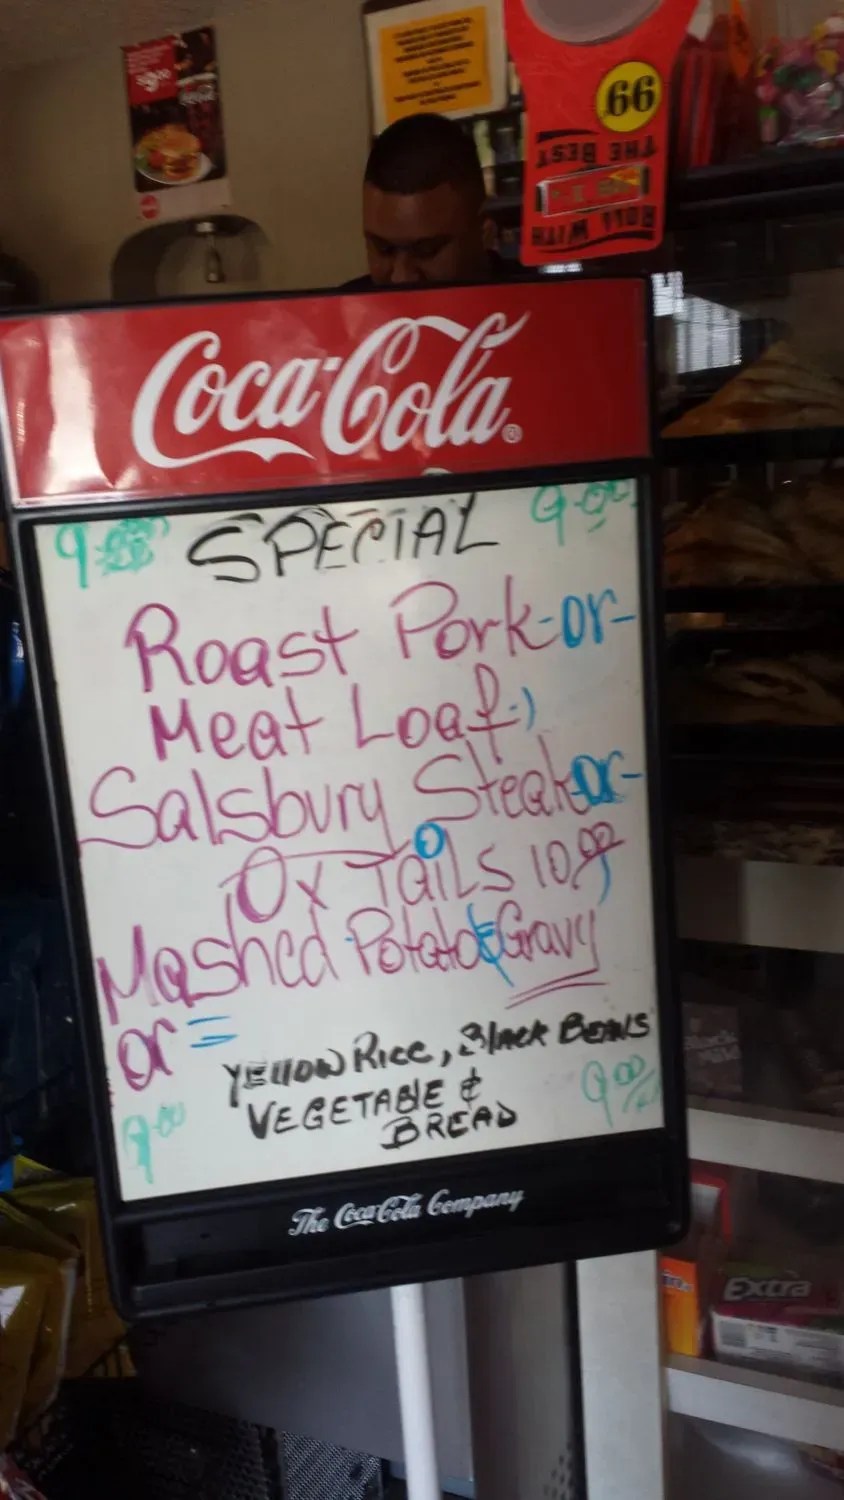 $9.00
.99
THE BEST
ROLL WITH
Coca-Cola
9.00 SPECIAL 9.00
Roast Pork -or-
Meat Loaf,
Salsbury Steak -or-
Ox Tails 10.00
Mashed Potato & Gravy
or =
Yellow Rice, Black Beans
Vegetable &
Bread
9.00
9.00
The Coca-Cola Company
Extra